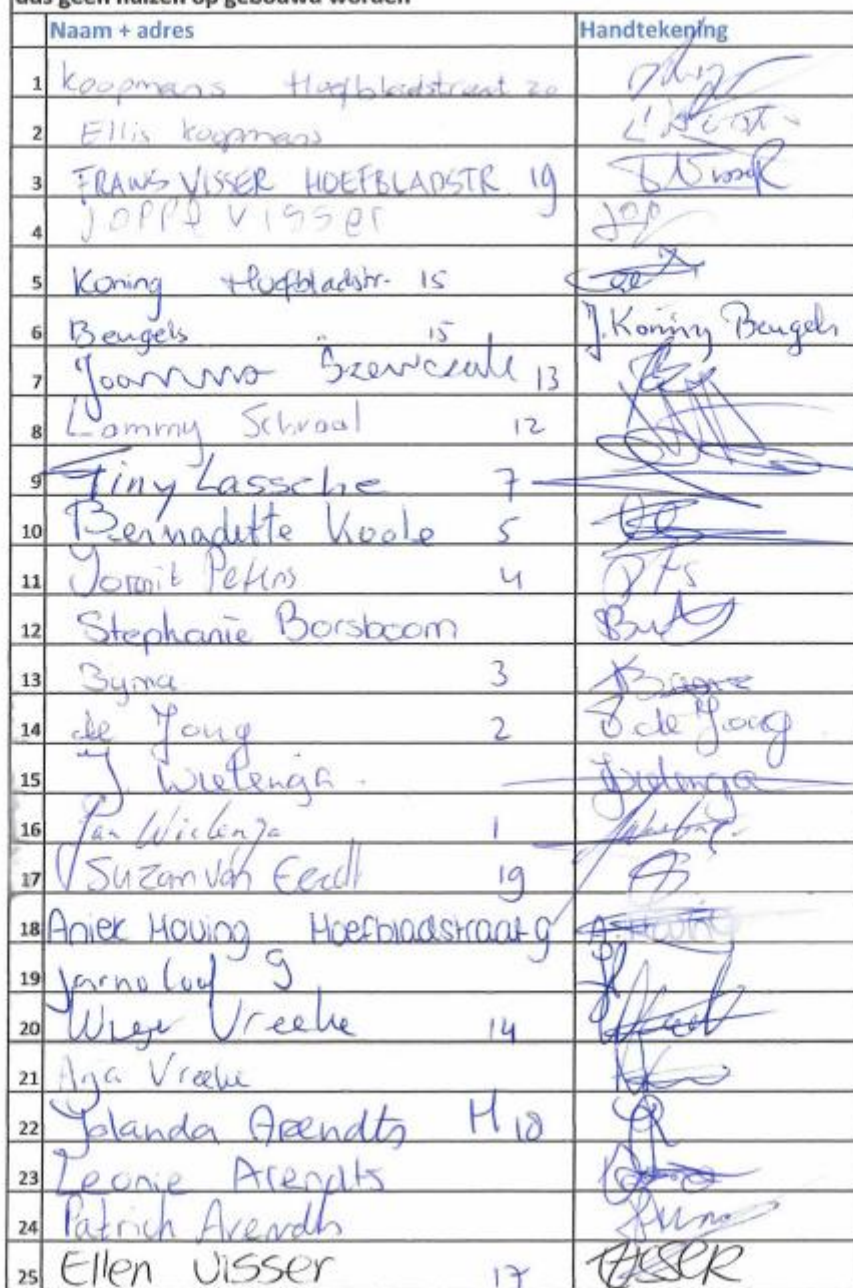 dus geen huizen op gebouwd worden
Naam + adres Handtekening
1 Koopmans Hoefbladstraat 20
2 Ellis Koopmans
3 FRANS VISSER HOEFBLADSTR 19
4 JOPPE VISSER Jop
5 Koning Hoefbladstr. 15
6 Beugels " 15 J. Koning Beugels
7 Joanna 13
8 Lammy Schraal 12
9 Tiny Lassche 7
10 Bernadette Koole 5
11 Peters 4
12 Stephanie Borsboom
13 Byma 3
14 de Jong 2 de Jong
15 J. Wielenga Wielenga
16 Jan Wielenga 1
17 Suzan van 19
18 Aniek Hoving Hoefbladstraat 9 A. Hoving
19 Jarno 9
20 Vreeke 14
21 Anja Vreeke
22 Jolanda Arendts H 18
23 Leonie Arendts
24 Patrick Arendts
25 Ellen Visser 17 VISSER